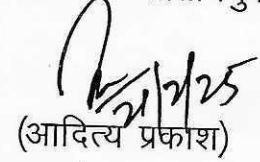 21/2/25
(आदित्य प्रकाश)